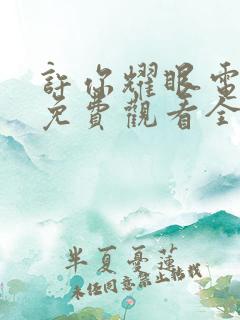 許你耀眼電
免費觀看全
半夏憂蓮
未经同意禁止转载